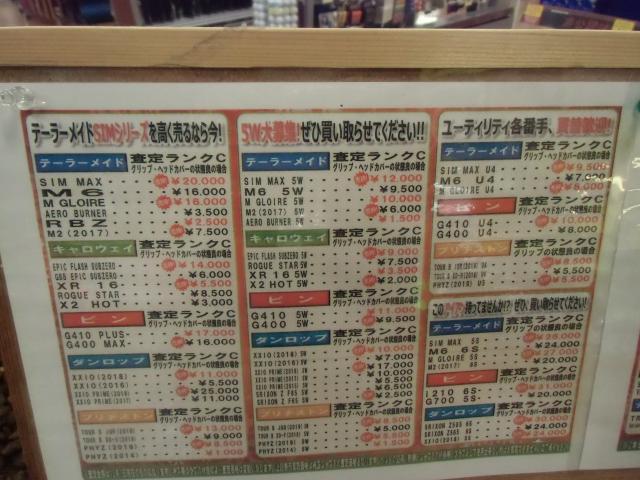 テーラーメイドSIMシリーズを高く売るなら今!
テーラーメイド 査定ランクC
グリップ・ヘッドカバーの状態良の場合
SIM MAX ¥20.000
M6 ¥16.000
M GLOIRE ¥16.000
AERO BURNER ¥3.500
RBZ ¥2.500
M2(2017) ¥7.500
キャロウェイ 査定ランクC
グリップ・ヘッドカバーの状態良の場合
EPIC FLASH SUBZERO ¥14.000
GBB EPIC SUBZERO ¥6.000
XR 16 ¥5.500
ROGUE STAR ¥8.500
X2 HOT ¥3.000
ピン 査定ランクC
グリップ・ヘッドカバーの状態良の場合
G410 PLUS ¥17.000
G400 MAX ¥16.000
ダンロップ 査定ランクC
グリップ・ヘッドカバーの状態良の場合
XXIO(2018) ¥11.000
XXIO(2016) ¥5.500
XXIO PRIME(2019) ¥25.000
XXIO PRIME(2017) ¥11.000
ブリヂストン 査定ランクC
グリップ・ヘッドカバーの状態良の場合
TOUR B JGR(2019) ¥13.000
¥9.000
PHYZ(2016)
PHYZ(2014) ¥1.000
5W大募集!ぜひ買い取らせてください!!
テーラーメイド 査定ランクC
グリップ・ヘッドカバーの状態良の場合
SIM MAX 5W ¥12.000
M6 5W ¥9.500
M GLOIRE 5W ¥10.000
M2(2017) 5W ¥6.000
AERO BURNER 5W ¥1.500
キャロウェイ 査定ランクC
グリップ・ヘッドカバーの状態良の場合
EPIC FLASH SUBZERO 5W ¥9.000
ROGUE STAR 5W ¥7.500
XR 16 5W ¥3.500
X2 HOT 5W ¥2.000
ピン 査定ランクC
グリップ・ヘッドカバーの状態良の場合
G410 5W ¥11.000
G400 5W ¥9.500
ダンロップ 査定ランクC
グリップ・ヘッドカバーの状態良の場合
XXIO(2018) 5W ¥10.000
XXIO(2016) 5W ¥7.000
XXIO PRIME(2019) 5W ¥17.000
XXIO PRIME(2017) 5W ¥10.000
SRIXON Z F85 5W
SRIXON Z F65 5W ¥2.500
ブリヂストン 査定ランクC
グリップ・ヘッドカバーの状態良の場合
5W
5W ¥5.000
PHYZ(2016) 5W
PHYZ(2014) 5W ¥1.500
ユーティリティ各番手、買替歓迎!
テーラーメイド 査定ランクC
グリップ・ヘッドカバーの状態良の場合
SIM MAX U4 ¥9.500
M6 U4 ¥7.000
M GLOIRE U4
ピン 査定ランクC
グリップ・ヘッドカバーの状態良の場合
G410 U4 ¥10.000
G400 U4 ¥8.000
ブリヂストン 査定ランクC
グリップ・ヘッドカバーの状態良の場合
TOUR B JGR(2019) U4
U4 ¥5.500
PHYZ(2019) U5 ¥5.500
このアイアン持ってませんか!?ぜひ買い取らせてください!
テーラーメイド 査定ランクC
グリップの状態良の場合
SIM MAX 5S ¥25.000
M6 6S ¥24.000
M GLOIRE 5S ¥27.000
M2(2017) 6S ¥20.000
ピン 査定ランクC
グリップの状態良の場合
I210 6S
G700 5S ¥20.000
ダンロップ 査定ランクC
グリップの状態良の場合
SRIXON Z585 6S ¥30.000
SRIXON Z565 6S ¥24.000
¥24.000